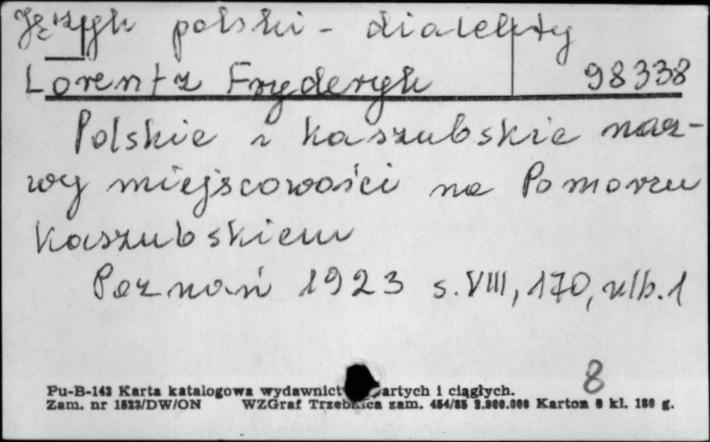 Język polski - dialekty
Lorentz Fryderyk 98338
Polskie i kaszubskie naz-
wy miejscowości na Pomorzu
Kaszubskiem
Poznań 1923 s. VIII, 170, nlb. 1
8
Pu-B-143 Karta katalogowa wydawnict artych i ciągłych.
Zam. nr 1523/DW/ON WZGraf Trzebnica zam. 454/85 Karton kl. g.